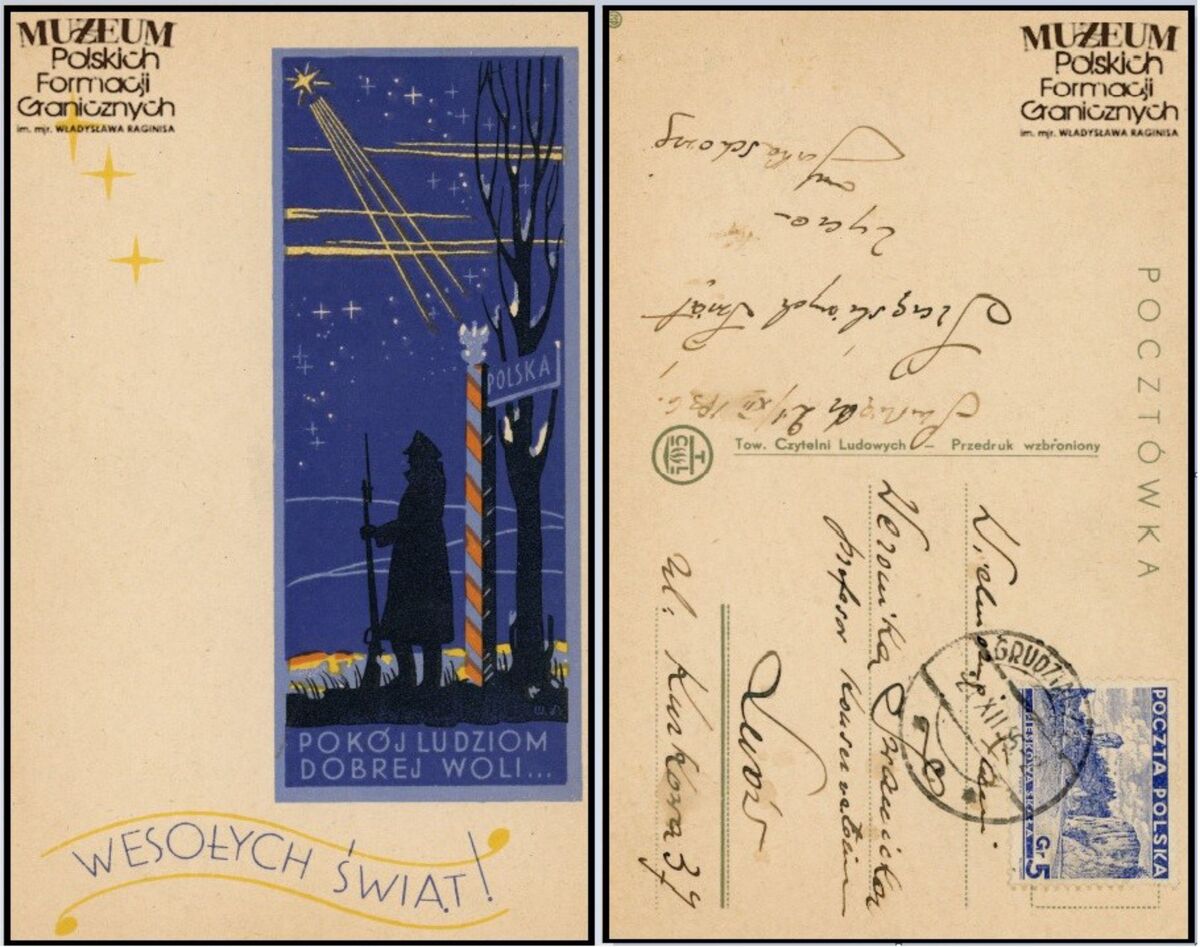 MUZEUM
Polskich
Formacji
Granicznych
im. mjr. WŁADYSŁAWA RAGINISA
POLSKA
POKÓJ LUDZIOM
DOBREJ WOLI...
WESOŁYCH ŚWIĄT!
MUZEUM
Polskich
Formacji
Granicznych
im. mjr. WŁADYSŁAWA RAGINISA
POCZTÓWKA
21/XII 1936.
Szczęśliwych Świąt
życzą
TCL
Tow. Czytelni Ludowych — Przedruk wzbroniony
Wielmożna Pani
Weronika
profesor
Lwów
ul. Kurkowa 37
GRUDZI
XII
POCZTA POLSKA
PIESKOWA SKAŁA
Gr. 5